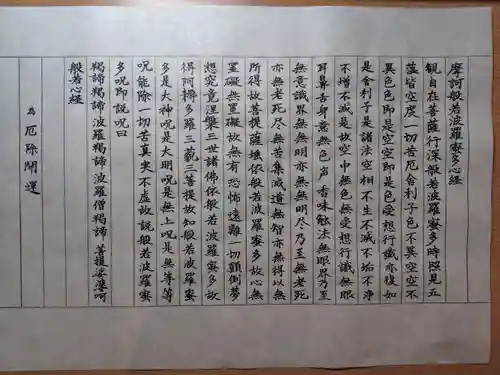 摩訶般若波羅蜜多心経
観自在菩薩行深般若波羅蜜多時照見五
蘊皆空度一切苦厄舎利子色不異空空不
異色色即是空空即是色受想行識亦復如
是舎利子是諸法空相不生不滅不垢不浄
不増不減是故空中無色無受想行識無眼
耳鼻舌身意無色声香味触法無眼界乃至
無意識界無無明亦無無明尽乃至無老死
亦無老死尽無苦集滅道無智亦無得以無
所得故菩提薩埵依般若波羅蜜多故心無
罣礙無罣礙故無有恐怖遠離一切顛倒夢
想究竟涅槃三世諸佛依般若波羅蜜多故
得阿耨多羅三藐三菩提故知般若波羅蜜
多是大神呪是大明呪是無上呪是無等等
呪能除一切苦真実不虚故説般若波羅蜜
多呪即説呪曰
羯諦羯諦 波羅羯諦 波羅僧羯諦 菩提娑婆呵
般若心経
為 厄除開運